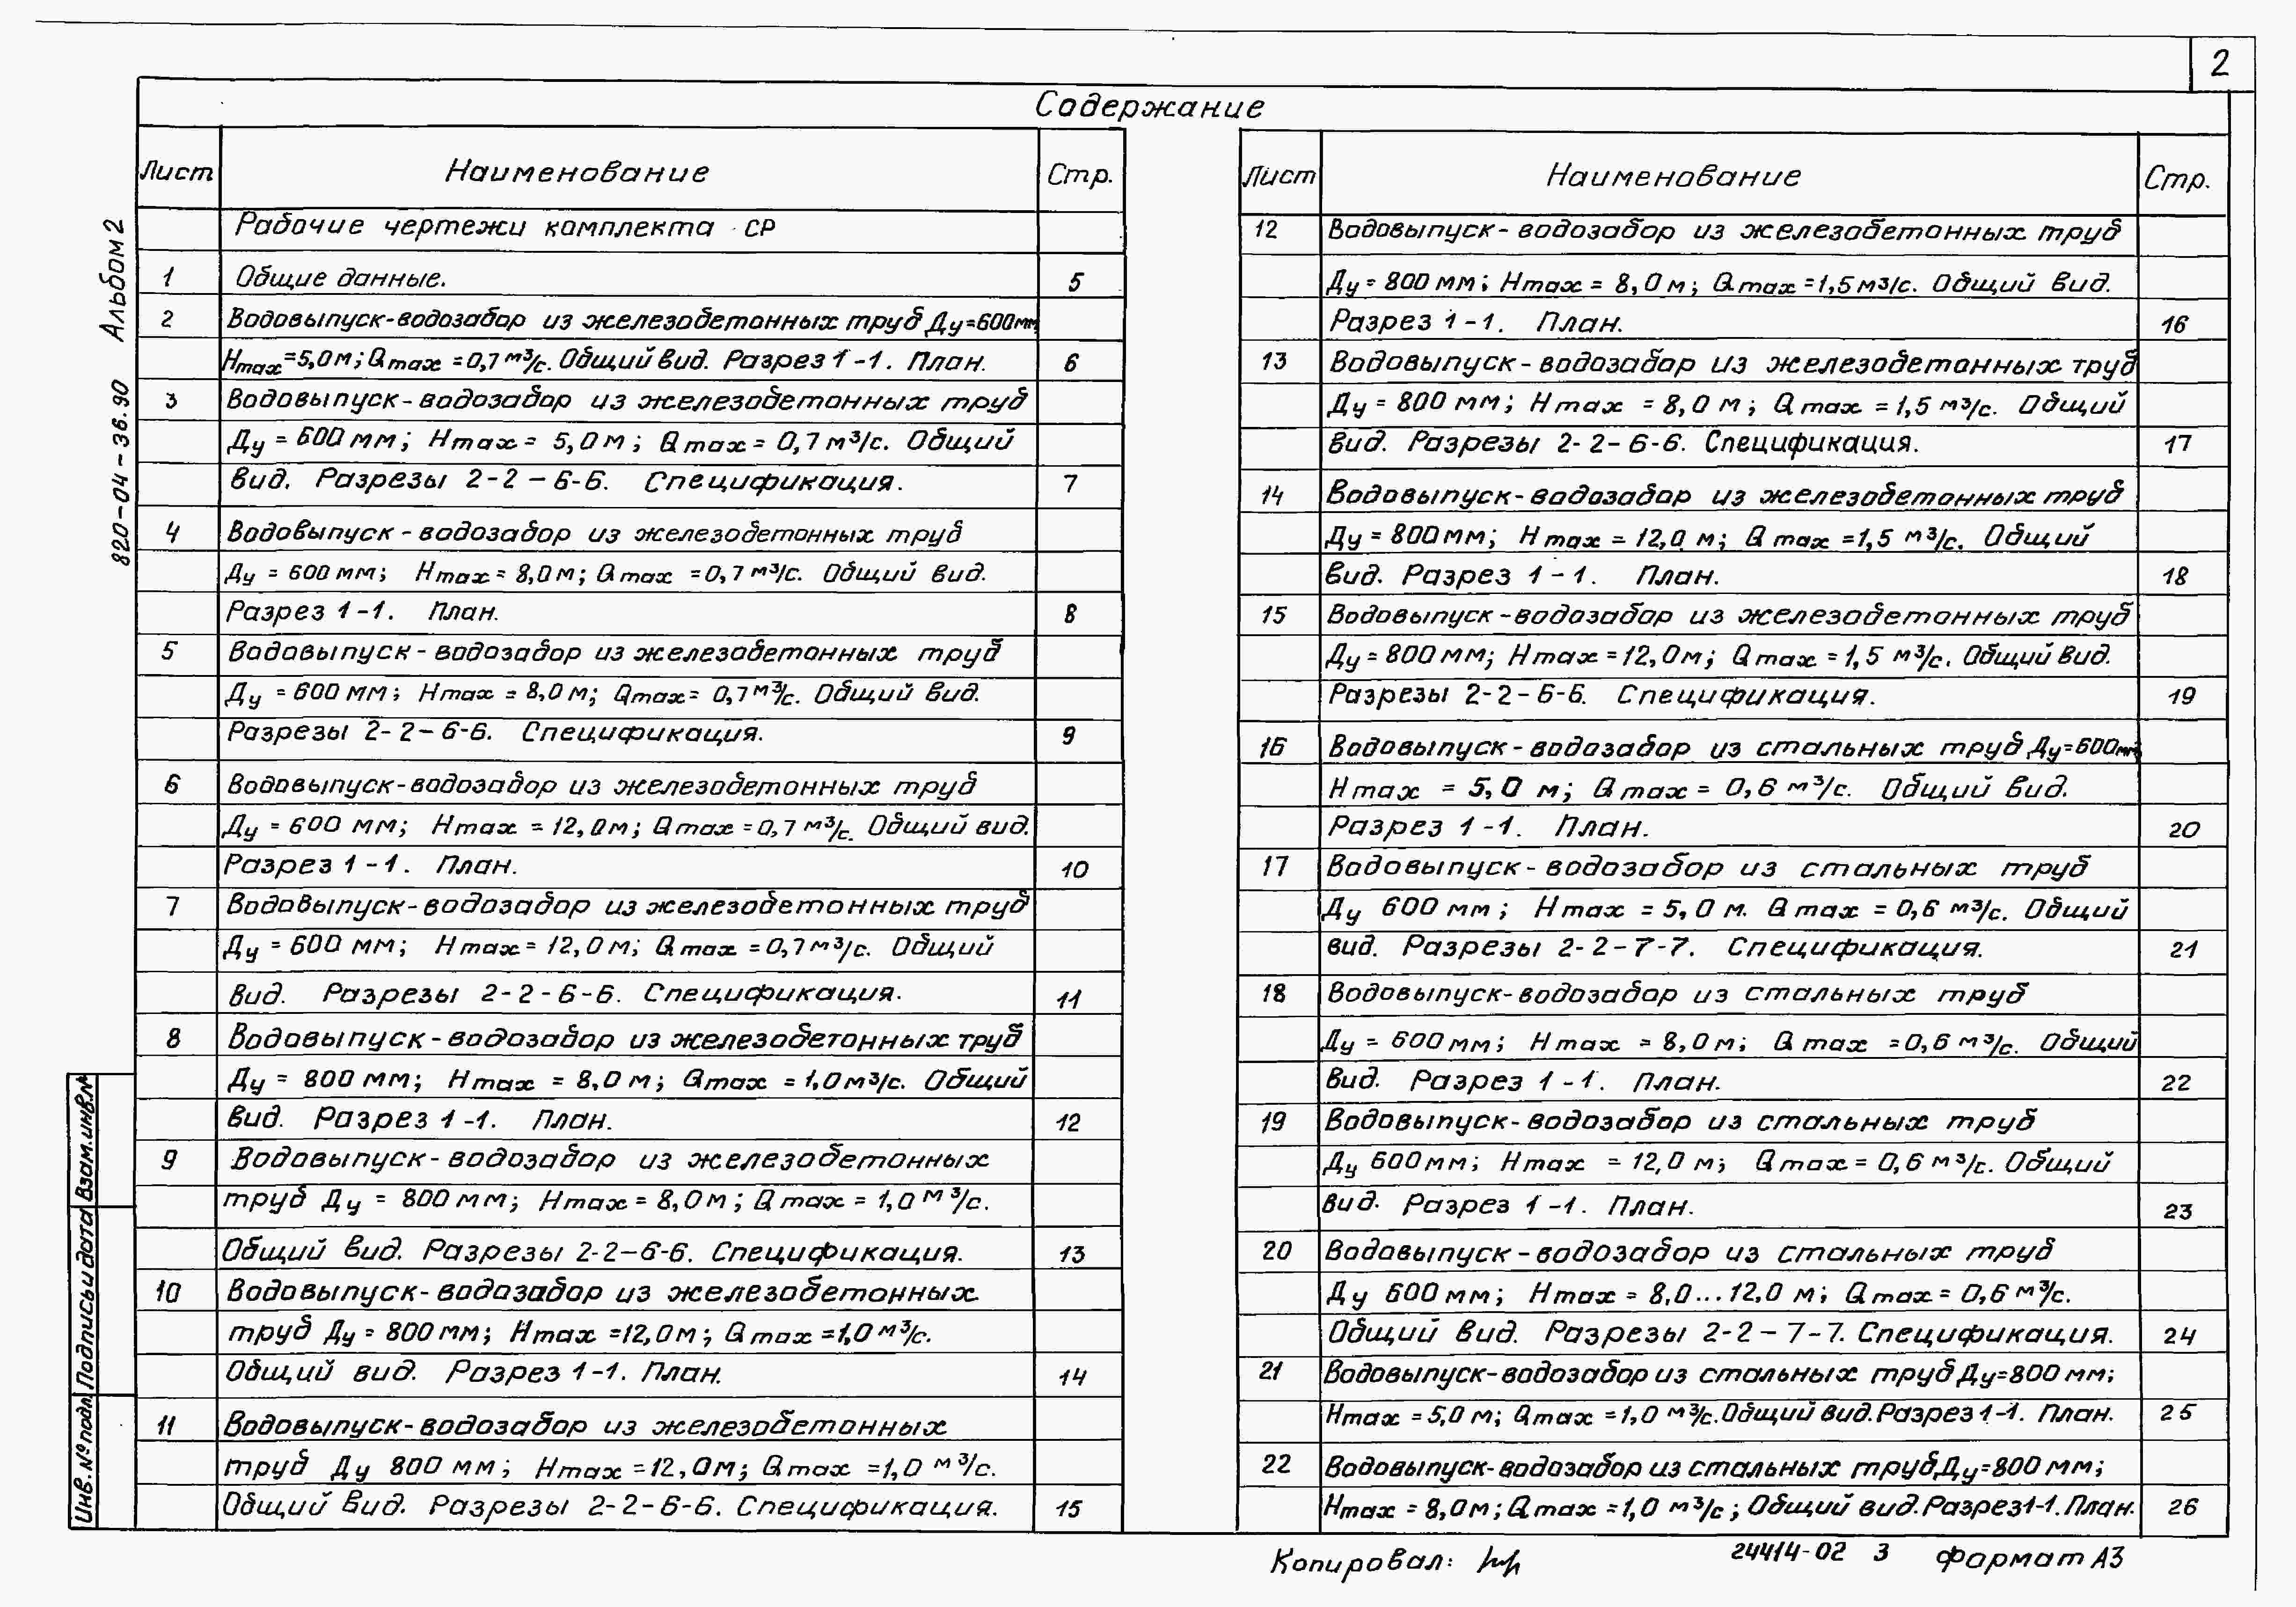 2
Содержание
Лист Наименование Стр.
Рабочие чертежи комплекта СР
1 Общие данные. 5
2 Водовыпуск-водозабор из железобетонных труб Ду=600мм
Hmax=5,0м; Qmax=0,7 м³/с. Общий вид. Разрез 1-1. План. 6
3 Водовыпуск-водозабор из железобетонных труб
Ду = 600 мм; Hmax = 5,0 м; Qmax = 0,7 м³/с. Общий
вид. Разрезы 2-2 – 6-6. Спецификация. 7
4 Водовыпуск-водозабор из железобетонных труб
Ду = 600 мм; Hmax = 8,0 м; Qmax = 0,7 м³/с. Общий вид.
Разрез 1-1. План. 8
5 Водовыпуск-водозабор из железобетонных труб
Ду = 600 мм; Hmax = 8,0 м; Qmax = 0,7 м³/с. Общий вид.
Разрезы 2-2 – 6-6. Спецификация. 9
6 Водовыпуск-водозабор из железобетонных труб
Ду = 600 мм; Hmax = 12,0м; Qmax = 0,7 м³/с. Общий вид.
Разрез 1-1. План. 10
7 Водовыпуск-водозабор из железобетонных труб
Ду = 600 мм; Hmax = 12,0 м; Qmax = 0,7 м³/с. Общий
вид. Разрезы 2-2 - 6-6. Спецификация. 11
8 Водовыпуск-водозабор из железобетонных труб
Ду = 800 мм; Hmax = 8,0 м; Qmax = 1,0 м³/с. Общий
вид. Разрез 1-1. План. 12
9 Водовыпуск-водозабор из железобетонных
труб Ду = 800 мм; Hmax = 8,0 м; Qmax = 1,0 м³/с.
Общий вид. Разрезы 2-2 – 6-6. Спецификация. 13
10 Водовыпуск-водозабор из железобетонных
труб Ду = 800 мм; Hmax = 12,0 м; Qmax = 1,0 м³/с.
Общий вид. Разрез 1-1. План. 14
11 Водовыпуск-водозабор из железобетонных
труб Ду 800 мм; Hmax = 12,0м; Qmax = 1,0 м³/с.
Общий вид. Разрезы 2-2 - 6-6. Спецификация. 15
Лист Наименование Стр.
12 Водовыпуск-водозабор из железобетонных труб
Ду = 800 мм; Hmax = 8,0 м; Qmax = 1,5 м³/с. Общий вид.
Разрез 1-1. План. 16
13 Водовыпуск-водозабор из железобетонных труб
Ду = 800 мм; Hmax = 8,0 м; Qmax = 1,5 м³/с. Общий
вид. Разрезы 2-2 - 6-6. Спецификация. 17
14 Водовыпуск-водозабор из железобетонных труб
Ду = 800мм; Hmax = 12,0 м; Qmax = 1,5 м³/с. Общий
вид. Разрез 1-1. План. 18
15 Водовыпуск-водозабор из железобетонных труб
Ду = 800 мм; Hmax = 12,0м; Qmax = 1,5 м³/с. Общий вид.
Разрезы 2-2 - 6-6. Спецификация. 19
16 Водовыпуск-водозабор из стальных труб Ду=600мм;
Hmax = 5,0 м; Qmax = 0,6 м³/с. Общий вид.
Разрез 1-1. План. 20
17 Водовыпуск-водозабор из стальных труб
Ду 600 мм; Hmax = 5,0 м. Qmax = 0,6 м³/с. Общий
вид. Разрезы 2-2 - 7-7. Спецификация. 21
18 Водовыпуск-водозабор из стальных труб
Ду = 600 мм; Hmax = 8,0 м; Qmax = 0,6 м³/с. Общий
вид. Разрез 1-1. План. 22
19 Водовыпуск-водозабор из стальных труб
Ду 600 мм; Hmax = 12,0 м; Qmax = 0,6 м³/с. Общий
вид. Разрез 1-1. План. 23
20 Водовыпуск-водозабор из стальных труб
Ду 600 мм; Hmax = 8,0...12,0 м; Qmax = 0,6 м³/с.
Общий вид. Разрезы 2-2 – 7-7. Спецификация. 24
21 Водовыпуск-водозабор из стальных труб Ду=800 мм;
Hmax = 5,0 м; Qmax = 1,0 м³/с. Общий вид. Разрез 1-1. План. 25
22 Водовыпуск-водозабор из стальных труб Ду=800 мм;
Hmax = 8,0м; Qmax = 1,0 м³/с; Общий вид. Разрез 1-1. План. 26
820-04-36.90 Альбом 2
Взам.инв.№
Подпись и дата
Инв. № подл.
Копировал:
24414-02 3 Формат А3